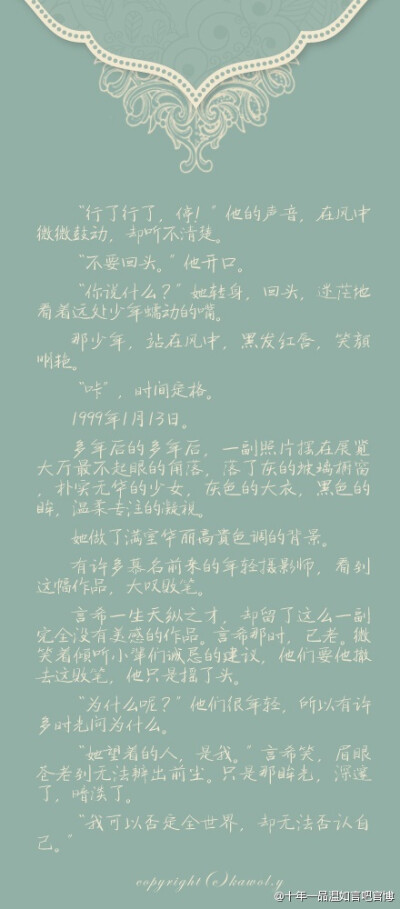 “行了行了，停！”他的声音，在风中
微微鼓动，却听不清楚。
“不要回头。”他开口。
“你说什么？”她转身，回头，迷茫地
看着远处少年蠕动的嘴。
那少年，站在风中，黑发红唇，笑颜
明艳。
“咔”，时间定格。
1999年1月13日。
多年后的多年后，一副照片摆在展览
大厅最不起眼的角落，落了灰的玻璃橱窗
，朴实无华的少女，灰色的大衣，黑色的
眸，温柔专注的凝视。
她做了满室华丽高贵色调的背景。
有许多慕名前来的年轻摄影师，看到
这幅作品，大叹败笔。
言希一生天纵之才，却留了这么一副
完全没有美感的作品。言希那时，已老。微
笑着倾听小辈们诚恳的建议，他们要他撤
去这败笔，他只是摇了头。
“为什么呢？”他们很年轻，所以有许
多时光问为什么。
“她望着的人，是我。”言希笑，眉眼
苍老到无法辨出前尘。只是那眸光，深邃
了，暗淡了。
“我可以否定全世界，却无法否认自
己。”
copyright (c)kawol.y
@十年一品温如言吧官博